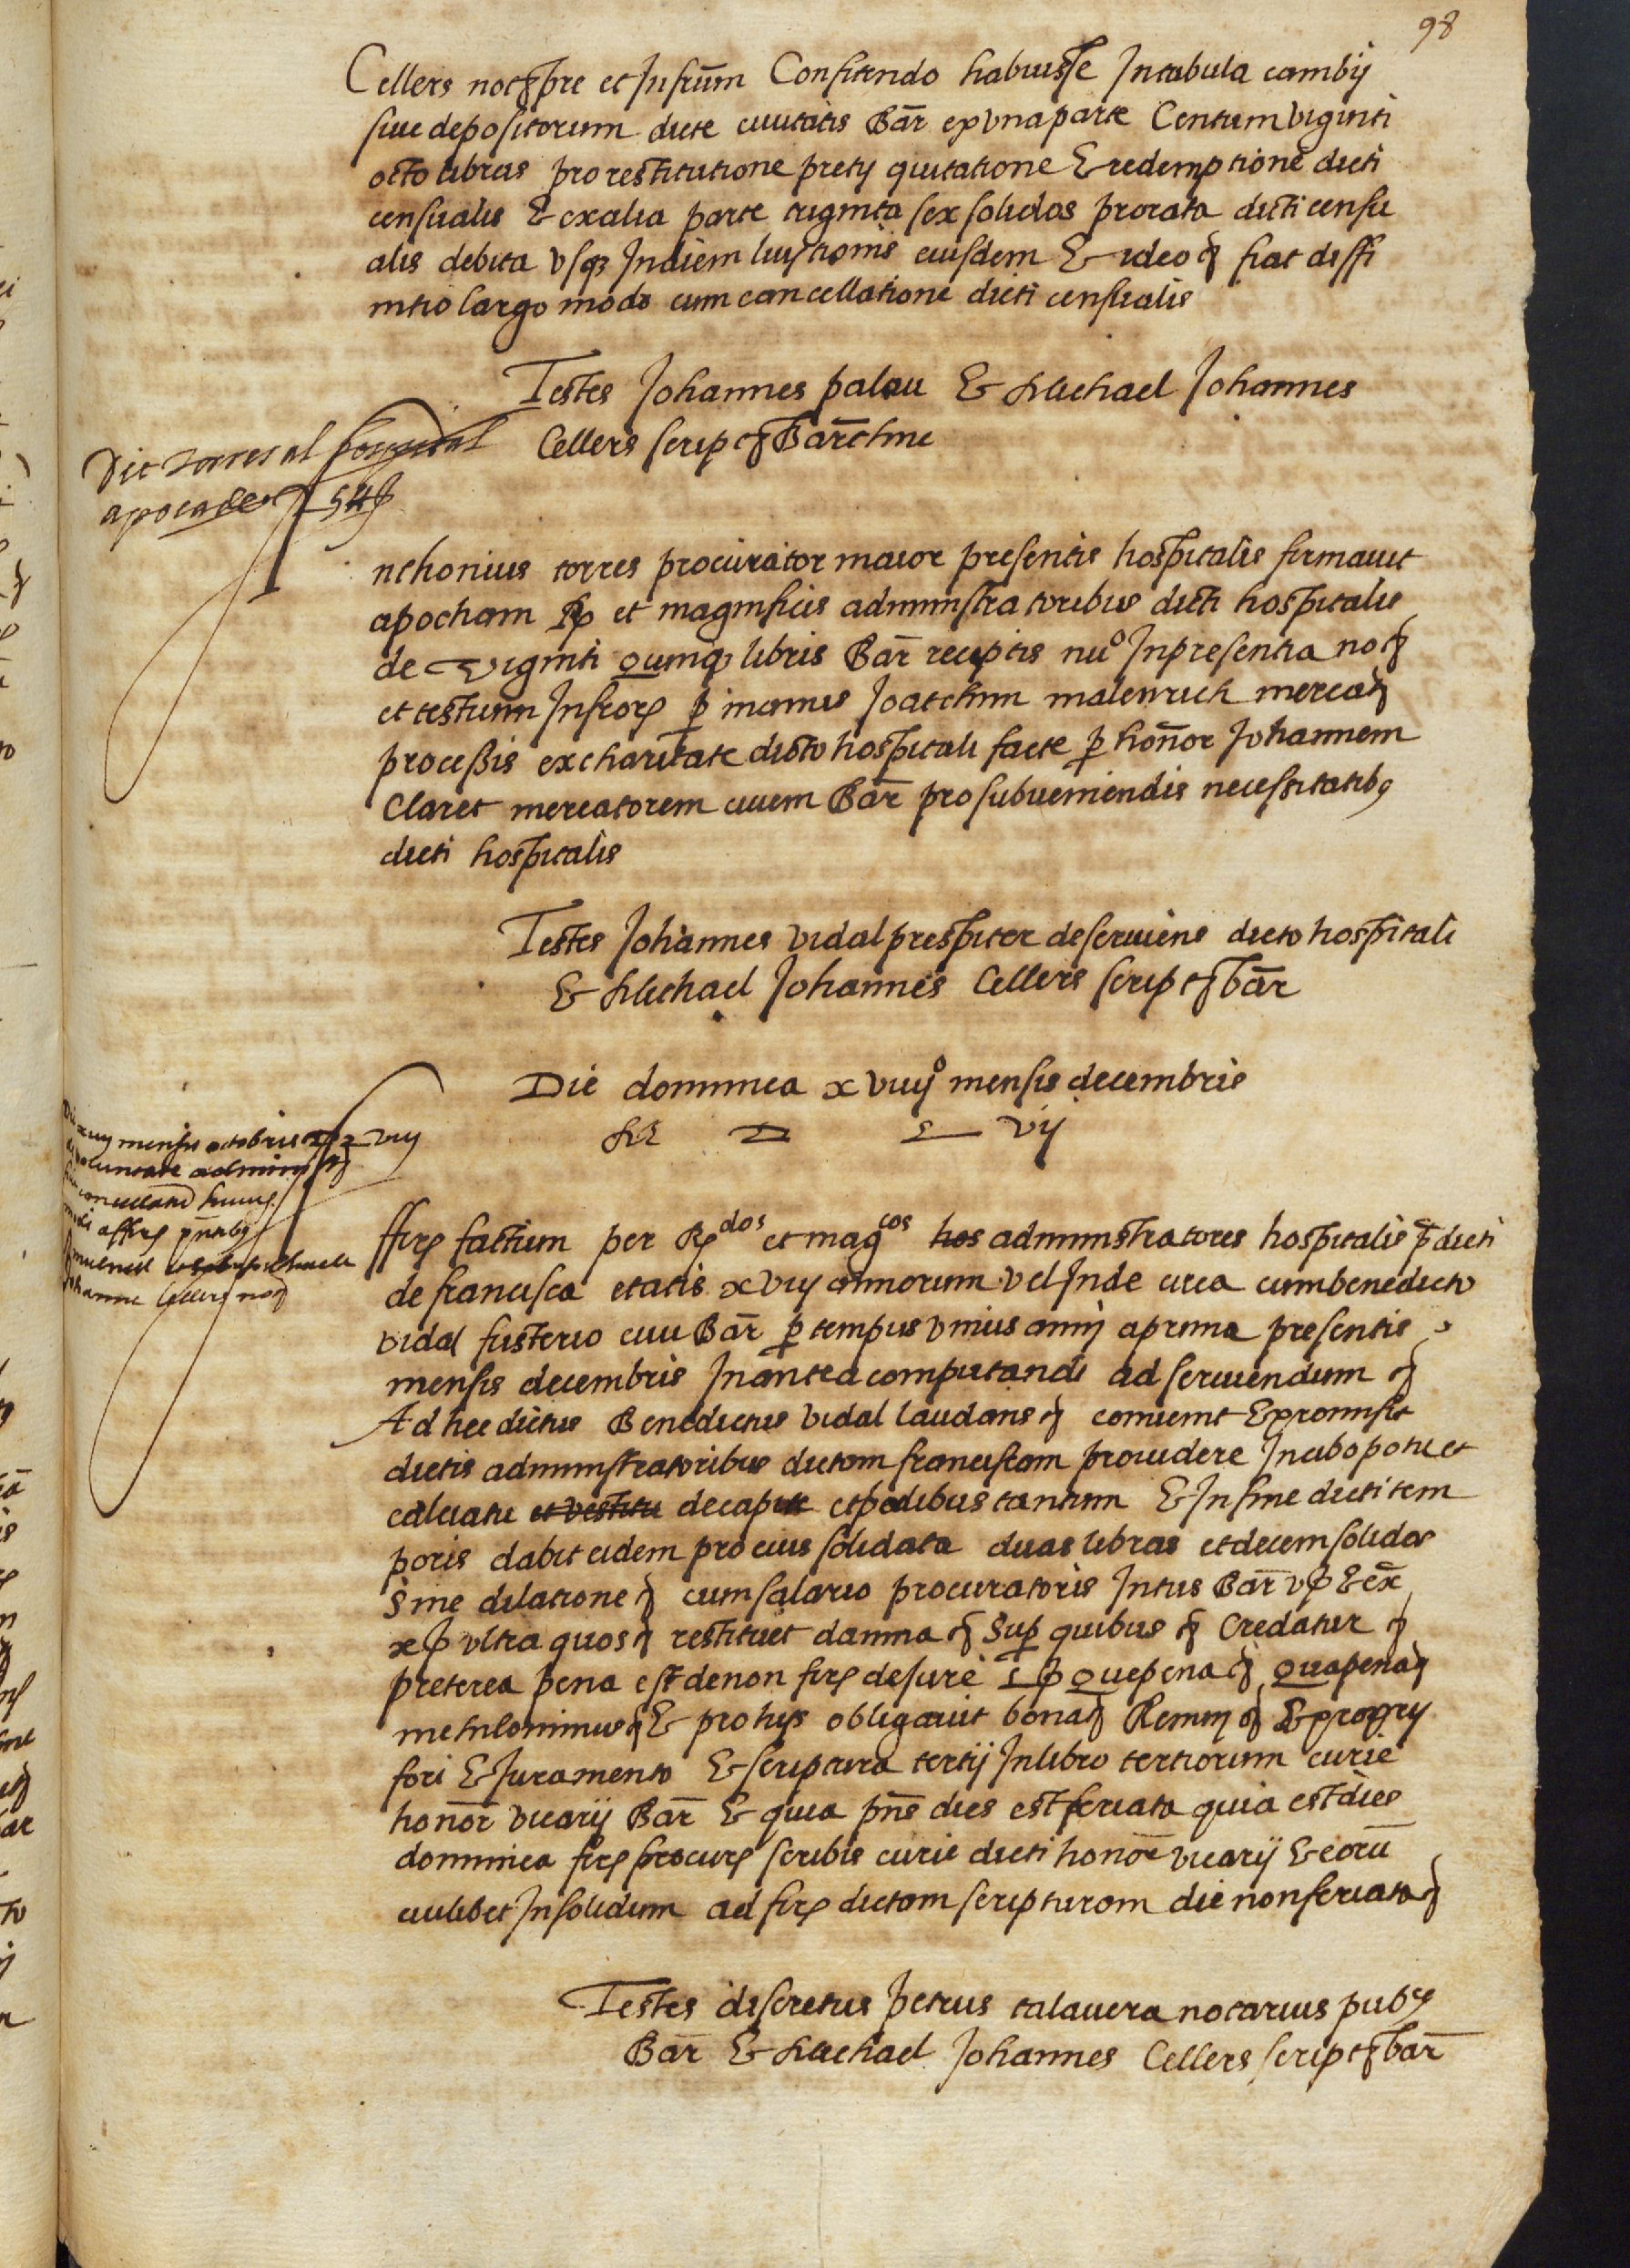 98
Cellers not pre et Infrūm Confitendo habuisse Intabula cambij
siue depositorum dicte ciuitatis Bar̄ ex vna parte Centum viginti
octo libras pro restitutione pretij quitatione & redemptione dicti
censualis & ex alia parte triginta sex solidos prorata dicti censu
alis debita vsq Indiem luytionis eiusdem & ideo fiat diffi
nitio largo modo cum cancellatione dicti censualis
Testes Johannes palau & Michael Johannes
Cellers scrip Bar̄chne
Die torres al hospital
apoca de 54
nthonius torres procurator maior presentis hospitalis firmauit
apocham et magnificis administratoribus dicti hospitalis
de viginti quinq libris Bar̄ receptis nuo Inpresentia no
et testium Infror p manus Joatchim malenrich mercat
processis ex charitate dicto hospitali facte p honor̄ Johannem
Claret mercatorem ciuem Bar̄ pro subueniendis necessitatib9
dicti hospitalis
Testes Johannes vidal prespiter deseruiens dicto hospitali
& Michael Johannes Cellers scrip bar̄
Die dominica x viiijo mensis decembris
M D L vij
mensis octobris
voluntate
ffirs factum per Rdos et magcos hos administratores hospitalis p̄dicti
de francisca etatis x viij annorum vel Inde circa cum benedicto
vidal fusterio ciui Bar̄ p tempus vnius annij a prima presentis
mensis decembris Inantea computandi ad seruiendum
Ad hec dictus Benedictus vidal laudans conuenit & promisit
dictis administratoribus dictam franciscam prouidere Incibo potu et
calciatu et vestitu de capite et pedibus tantum & In fine dicti tem
poris dabit eidem pro eius solidata duas libras et decem solidos
sine dilatione cum salario procuratoris Intus Bar̄ v & ex̄
x vltra quos restituet damna Sup quibus Credatur
preterea pena est de non firs de iure que pena qua pena
metu lominus & pro hijs obligauit bona Renun & proprij
fori & Juramento & scriptura tertij Inlibro tertiorum curie
honor̄ vicarij Bar̄ & quia pn̄s dies est feriata quia est dies
dominica firs procurs scribis curie dicti honor̄ vicarij & eorū
cuilibet Insolidum ad firs dictam scripturam die non feriata
Testes discretus petrus talauera notarius pub
Bar̄ & Michael Johannes Cellers scrip bar̄